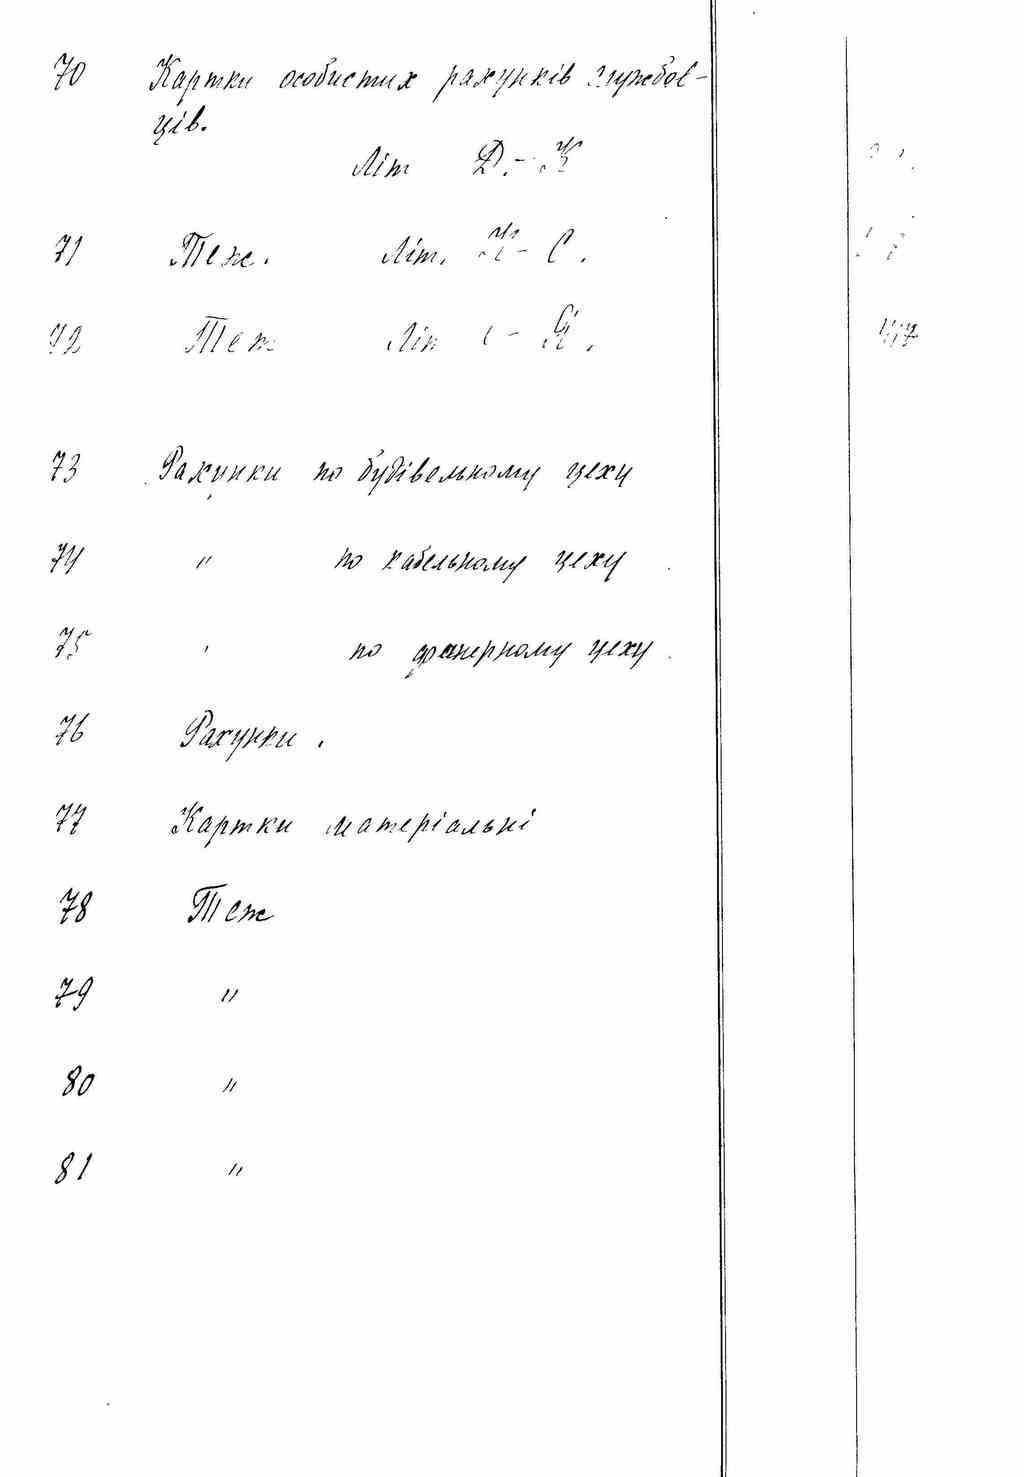 70 Картки особистих рахунків службов-
ців.
Літ Д.- К
71 Теж. Літ. К - С.
72 Теж Літ С - Я.
73 Рахунки по будівельному цеху
74 " по кабельному цеху
75 " по фанерному цеху.
76 Рахунки.
77 Картки матеріальні
78 Теж
79 "
80 "
81 "